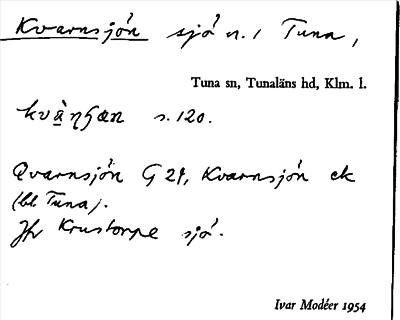 Kvarnsjön sjö n. i Tuna,
Tuna sn, Tunaläns hd, Klm. l.
s. 120.
Qvarnsjön G 29, Kvarnsjön ek
(bl. Tuna).
Jfr Krustorpe sjö.
Ivar Modéer 1954